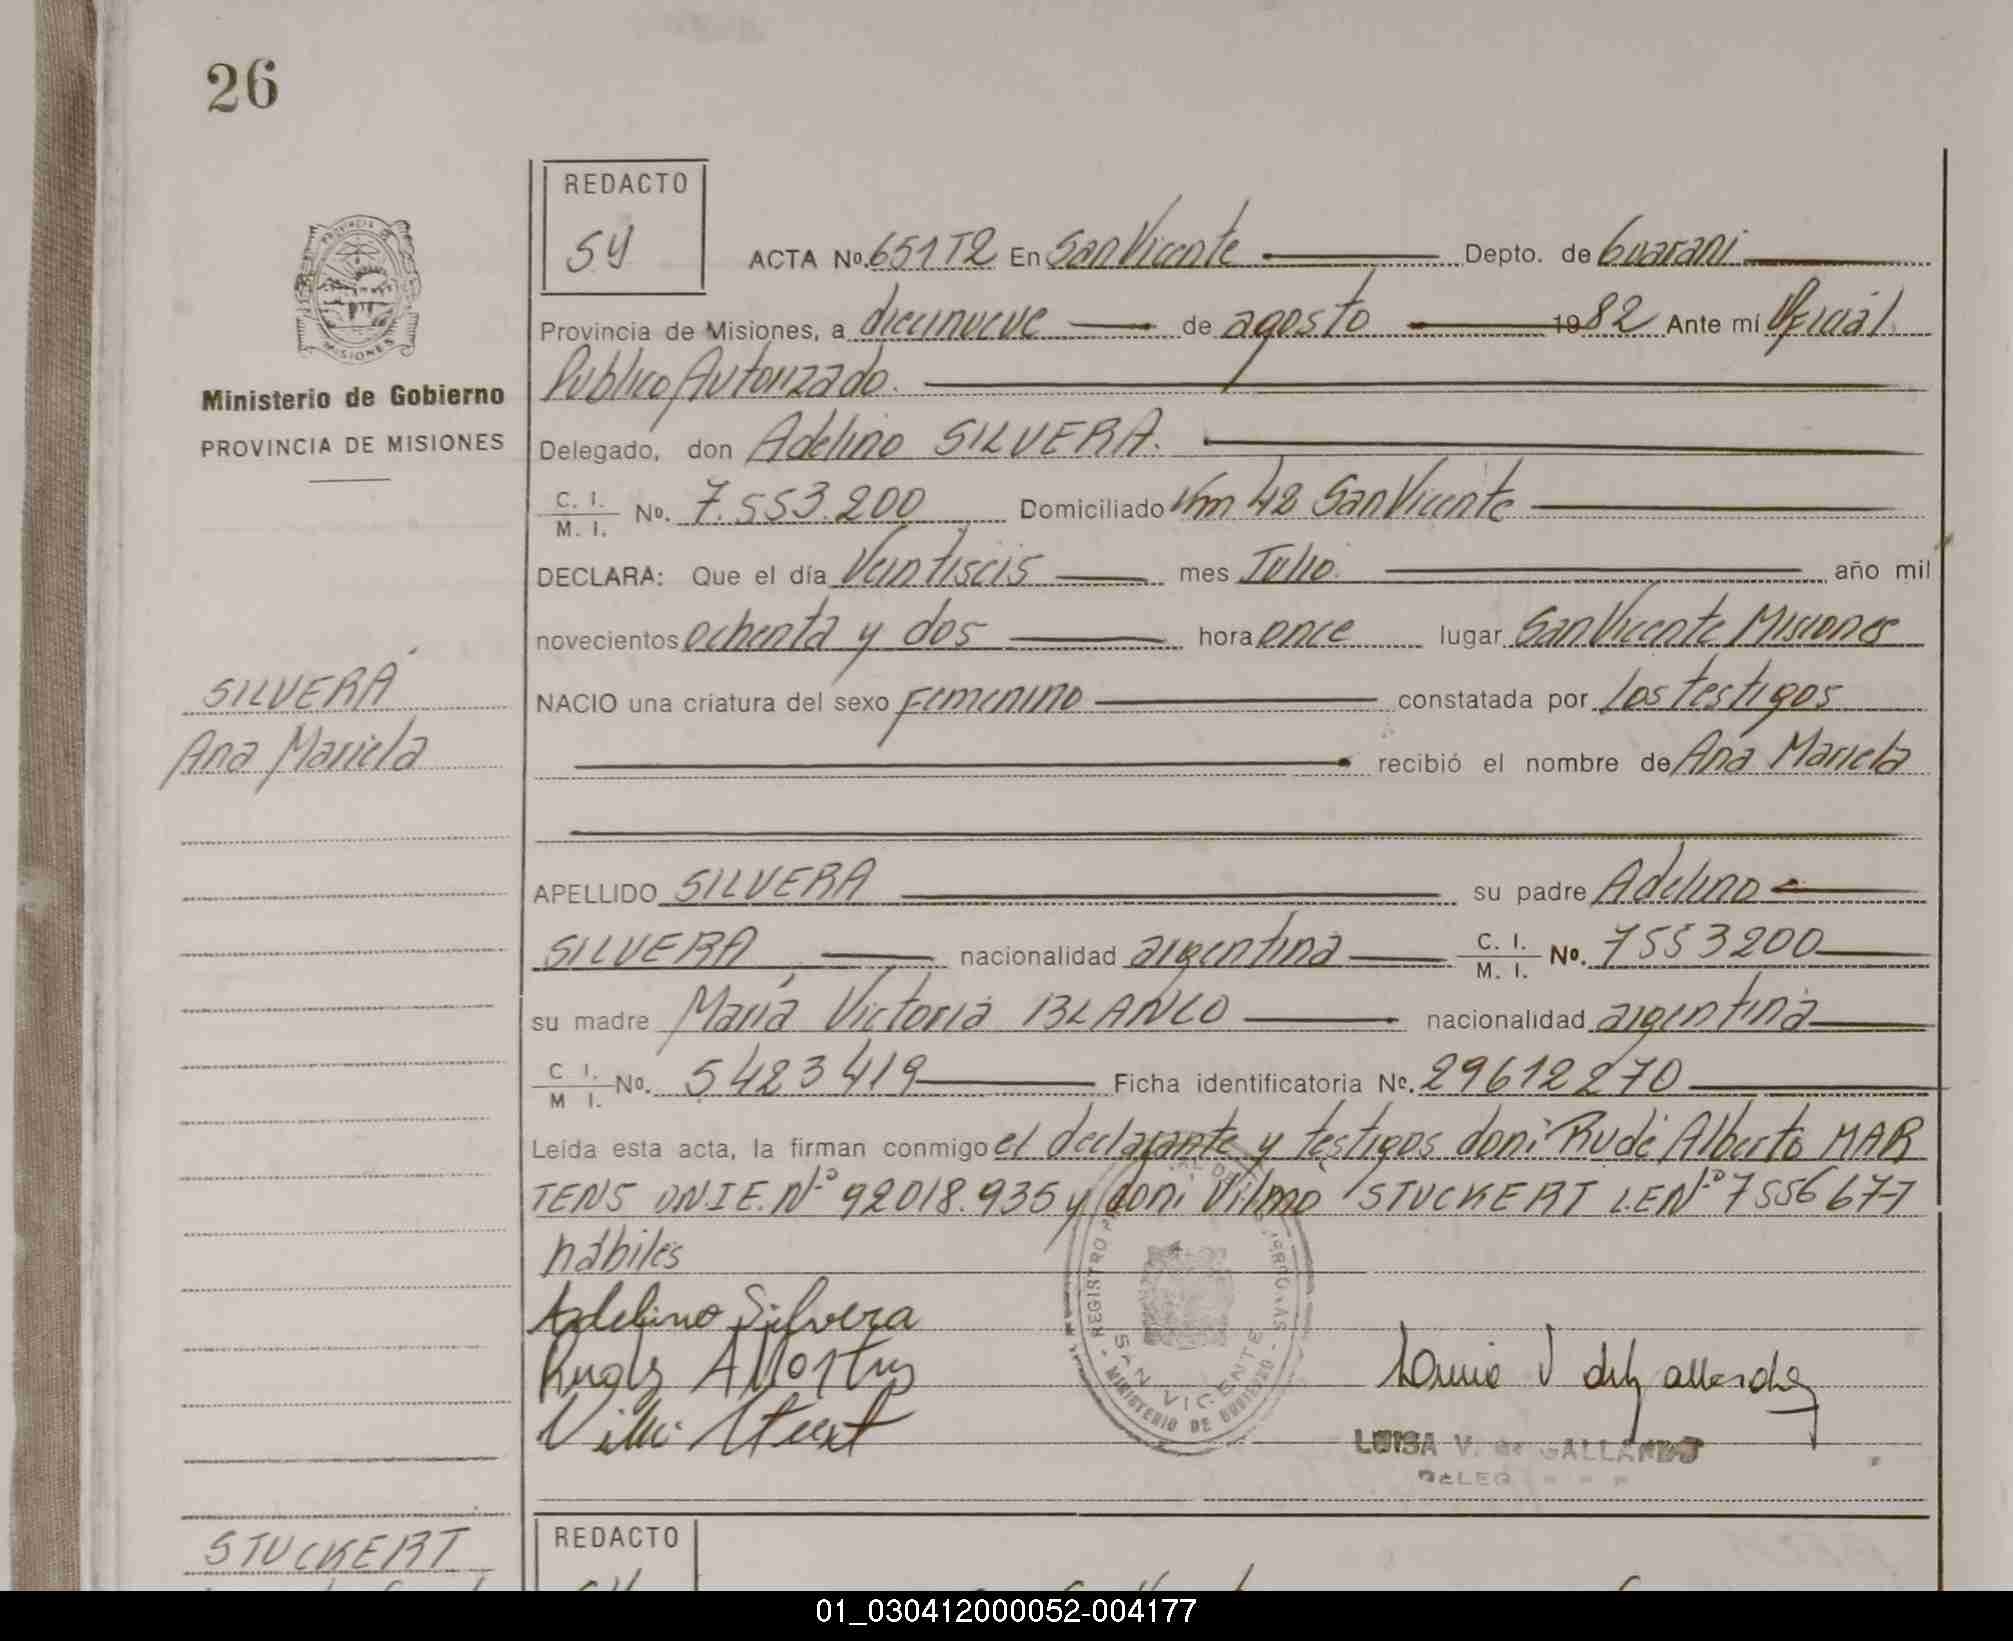 26
REDACTO
SY
ACTA No. 651 T2 En San Vicente Depto. de Guaraní
Provincia de Misiones, a diecinueve de agosto 1982 Ante mí Oficial
Público Autorizado.
Ministerio de Gobierno
PROVINCIA DE MISIONES
Delegado, don Adelino SILVERA.
C. I. M. I. No. 7.553.200 Domiciliado Km 42 San Vicente
DECLARA: Que el día Veintiseis mes Julio. año mil
novecientos ochenta y dos hora once lugar San Vicente Misiones
SILVERA
NACIO una criatura del sexo femenino constatada por los testigos
Ana Mariela
recibió el nombre de Ana Mariela
APELLIDO SILVERA su padre Adelino
SILVERA nacionalidad argentina C. I. M. I. No. 7553200
su madre María Victoria BLANCO nacionalidad argentina
C I. M I. No. 5423419 Ficha identificatoria No. 29612270
Leída esta acta, la firman conmigo el declarante y testigos doni Rude Alberto MAR
TENS DNIE. Nº 92018.935 y doni Vilmo STUCKERT L.E Nº 7556677
hábiles
Adelino Silvera
REGISTRO
SAN VICENTE
MINISTERIO DE GOBIERNO
LUISA V. de GALLARDO
STUCKERT
REDACTO
01_030412000052-004177